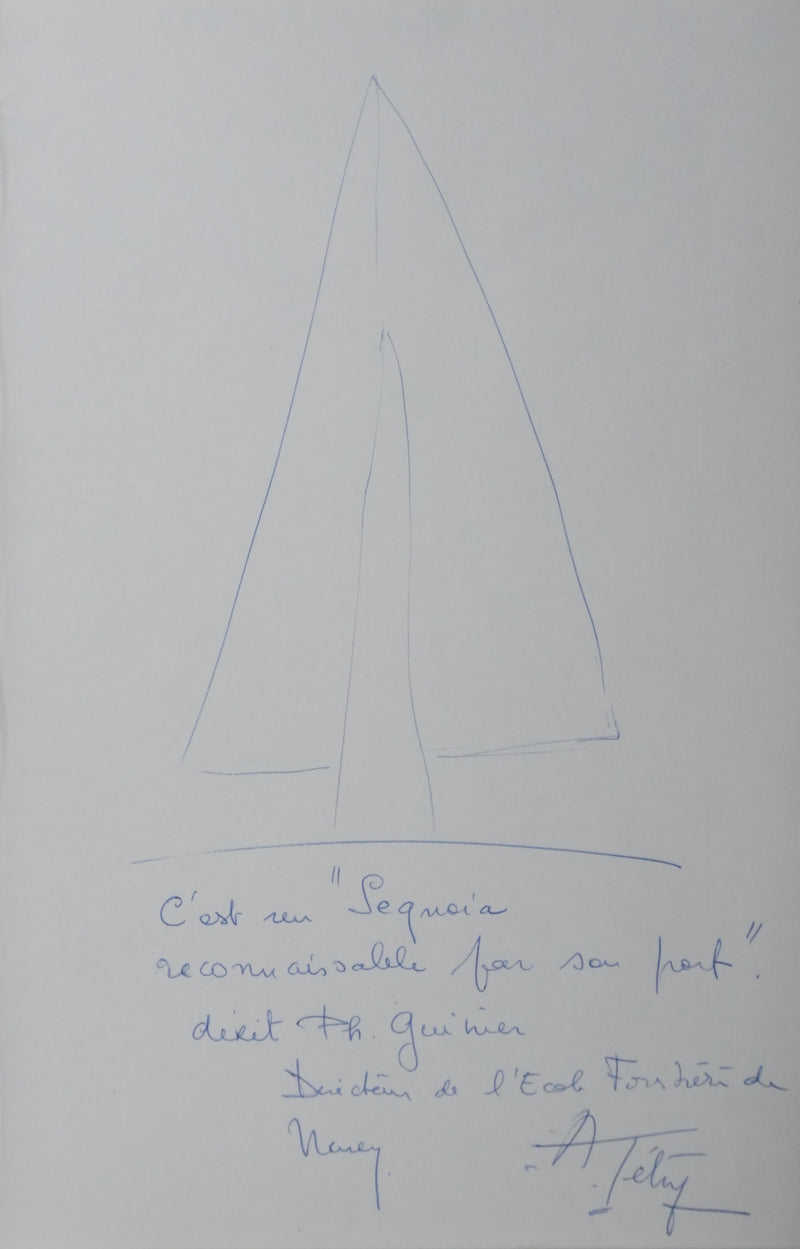 C'est un "Sequoia
reconnaissable par son port".
dixit Ph. Guinier
Directeur de l'Ecole Forestière de
Nancy
A. Tétry